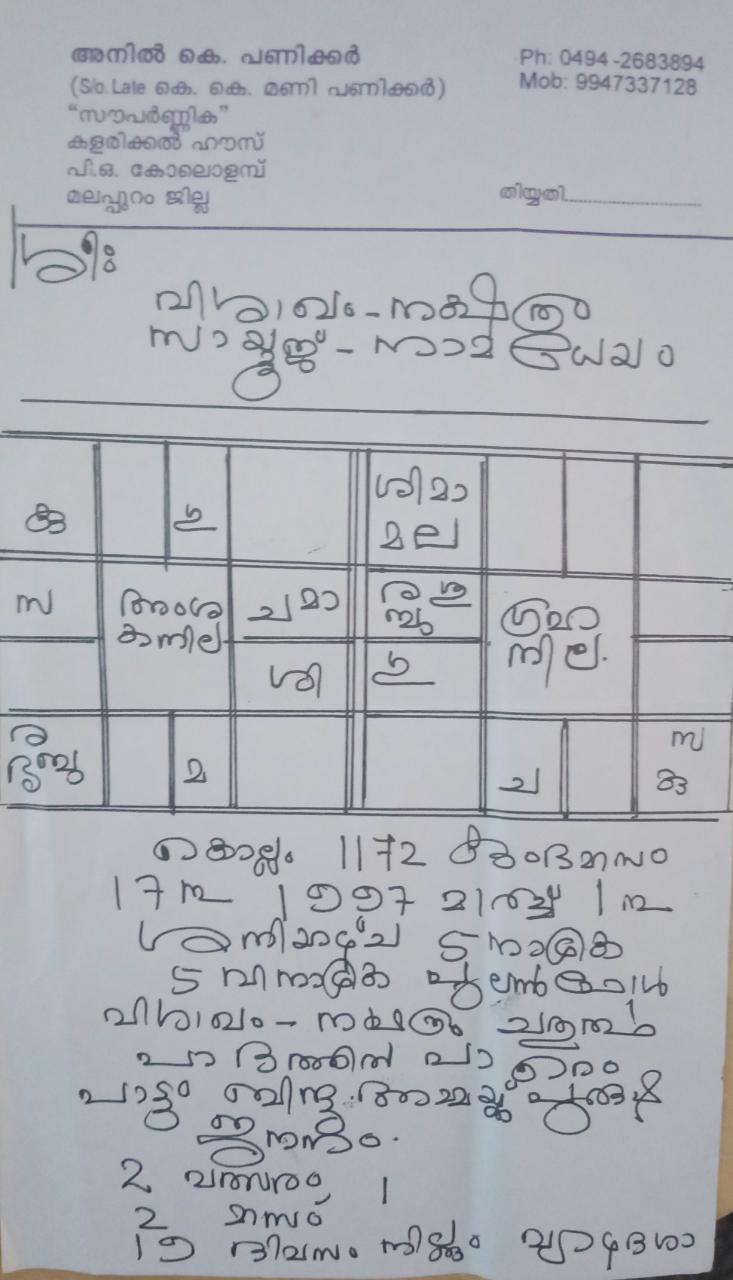 അനിൽ കെ. പണിക്കർ
(S/o. Late കെ. കെ. മണി പണിക്കർ)
"സൗപർണ്ണിക"
കളരിക്കൽ ഹൗസ്
പി.ഒ. കോലൊളമ്പ്
മലപ്പുറം ജില്ല
Ph: 0494 -2683894
Mob: 9947337128
തിയ്യതി..............................
ശ്രീഃ
വിശാഖം - നക്ഷത്രം
സായൂജ് - നാമധേയം
കു ഗു ശിമാ
മല
സ അംശ ചമാ ര ശു ഗ്രഹ
കനില ബു നില.
ശി ഗു
ര മ ച സ
ബു കു
കൊല്ലം 1172 കുംഭമാസം
17 നു 1997 മാർച്ച് 1 നു
ശനിയാഴ്ച 5 നാഴിക
5 വിനാഴിക പുലർന്നപ്പോൾ
വിശാഖം - നക്ഷത്രം
പാദത്തിൽ
ബിന്ദു. അമ്മയ്ക്ക്
ജനനം.
2 വത്സരം, 1
2 മാസം
19 ദിവസം നില്പും വ്യാഴദശാ